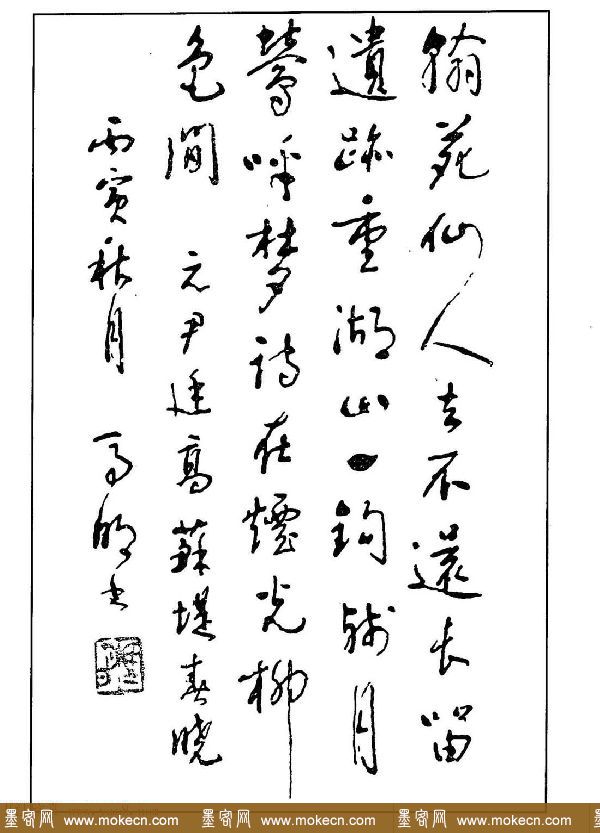 翰苑仙人去不還长留
遺跡重湖山一鉤殘月
鶯呼夢詩在煙光柳
色間 元尹廷高蘇堤春曉
丙寅秋月 书
墨客网 www.mokecn.com 墨客网 www.mokecn.com 墨客网 www.mokecn.com